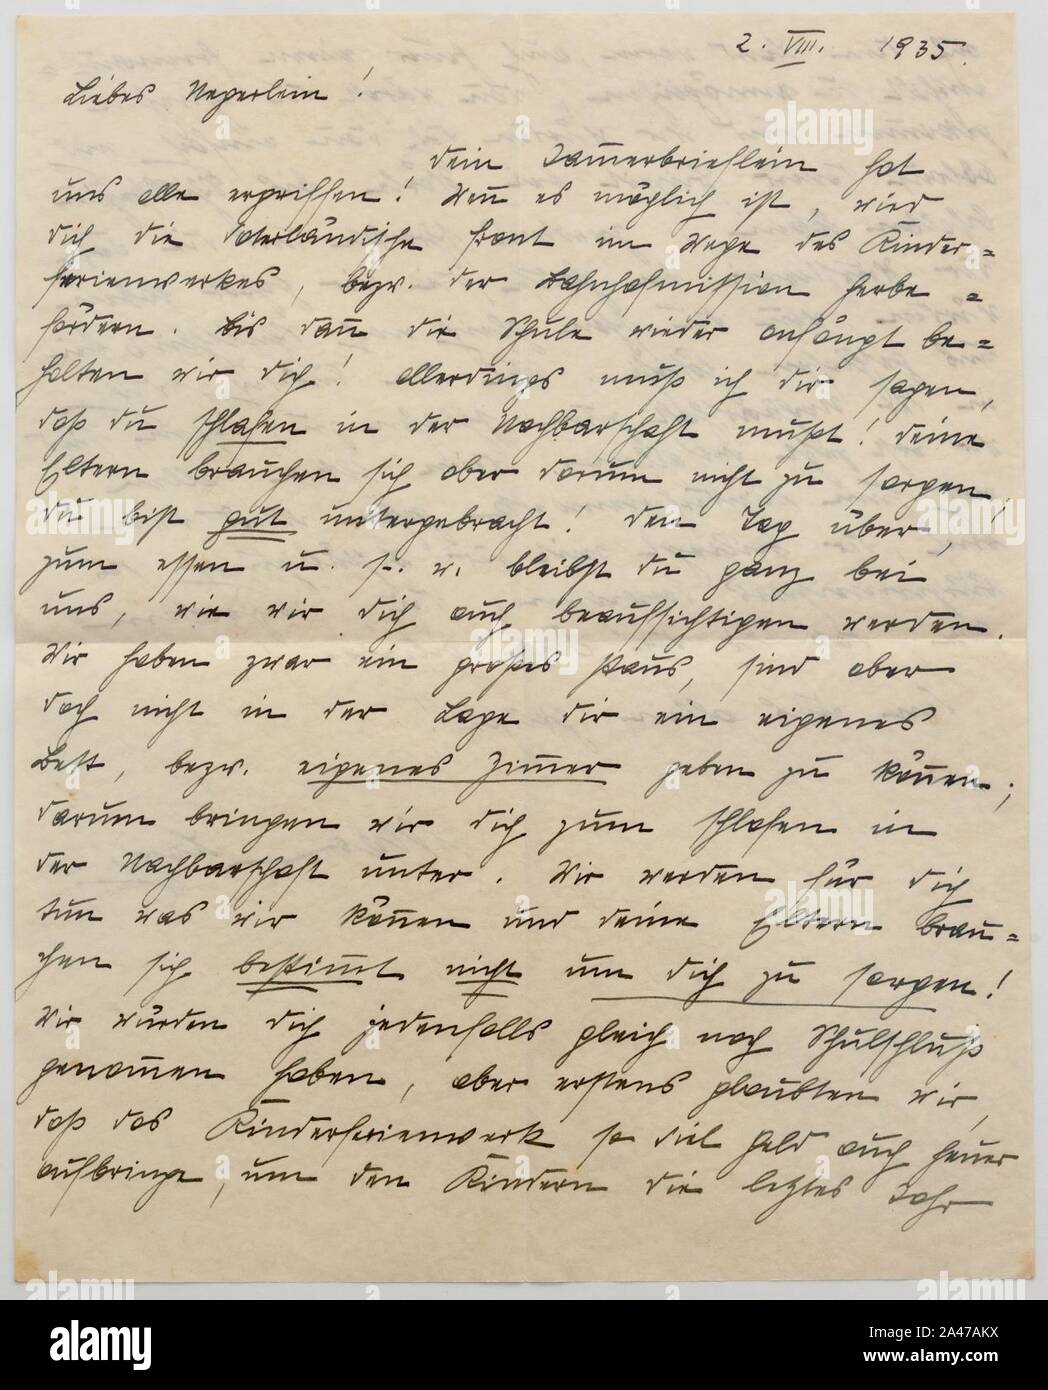 2. VIII. 1935.
Liebes Negerlein!
Dein Jam̅erbrieflein hat
uns alle ergriffen! Wen̅ es möglich ist, wird
dich die Vaterländische Front im Wege des Kinder=
ferienwerkes, bezw. der Bahnhofmission herbe=
fördern. Bis dan̅ die Schule wieder anfängt be=
halten wir dich! Allerdings muß ich dir sagen,
daß du schlafen in der Nachbarschaft mußt! Deine
Eltern brauchen sich aber darum nicht zu sorgen,
du bist gut untergebracht! Den Tag über,
zum essen u. s. w. bleibst du ganz bei
uns, wie wir dich auch beaufsichtigen werden.
Wir haben zwar ein großes Haus, sind aber
doch nicht in der Lage dir ein eigenes
Bett, bezw. eigenes Zim̅er geben zu kön̅en;
darum bringen wir dich zum schlafen in
der Nachbarschaft unter. Wir werden für dich
tun was wir kön̅en und deine Eltern brau=
chen sich bestim̅t nicht um dich zu sorgen!
Wir würden dich jedenfalls gleich nach Schulschluß
genom̅en haben, aber erstens glaubten wir,
daß das Kinderferienwerk so viel Geld auch heuer
aufbringe, um den Kindern die letztes Jahr
alamy
alamy
2A47AKX
www.alamy.com